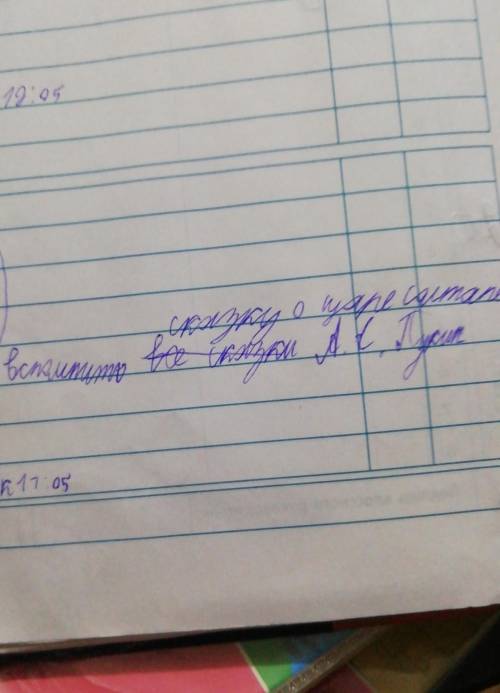 12:05
сказку о царе салтане
вспомнить все сказки А. С. Пушкин
к 17:05